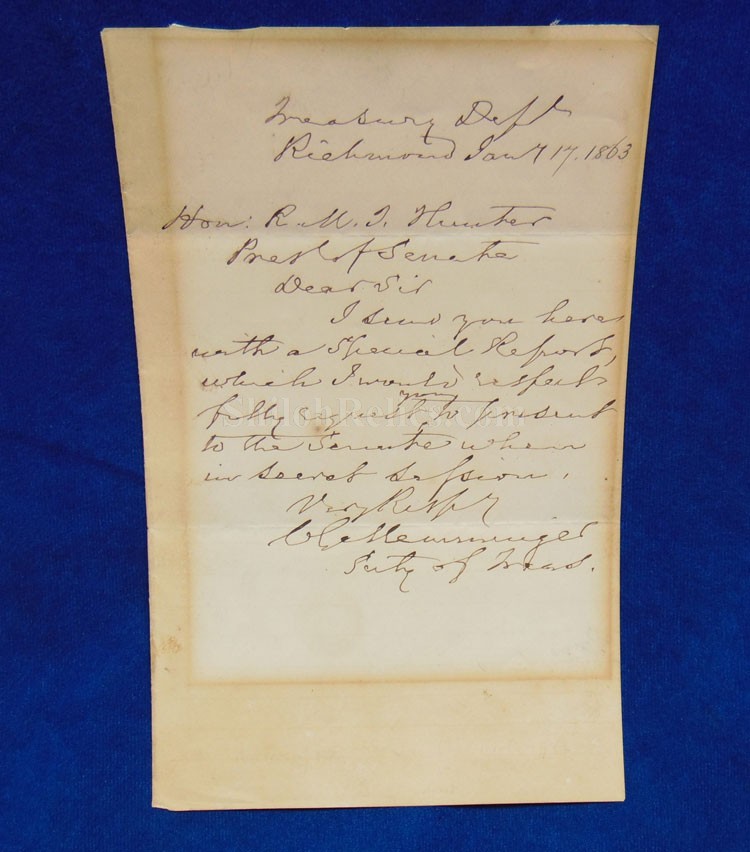 Treasury Dept
Richmond Jany 17. 1863
Hon: R. M. T. Hunter
Prest of Senate
Dear Sir
I send you here
with a Special Report,
which I would respect
fully request you to present
to the Senate when
in secret session.
Very Resp'y
C G Memminger
Secty of Treas.
ShilohRelics.com